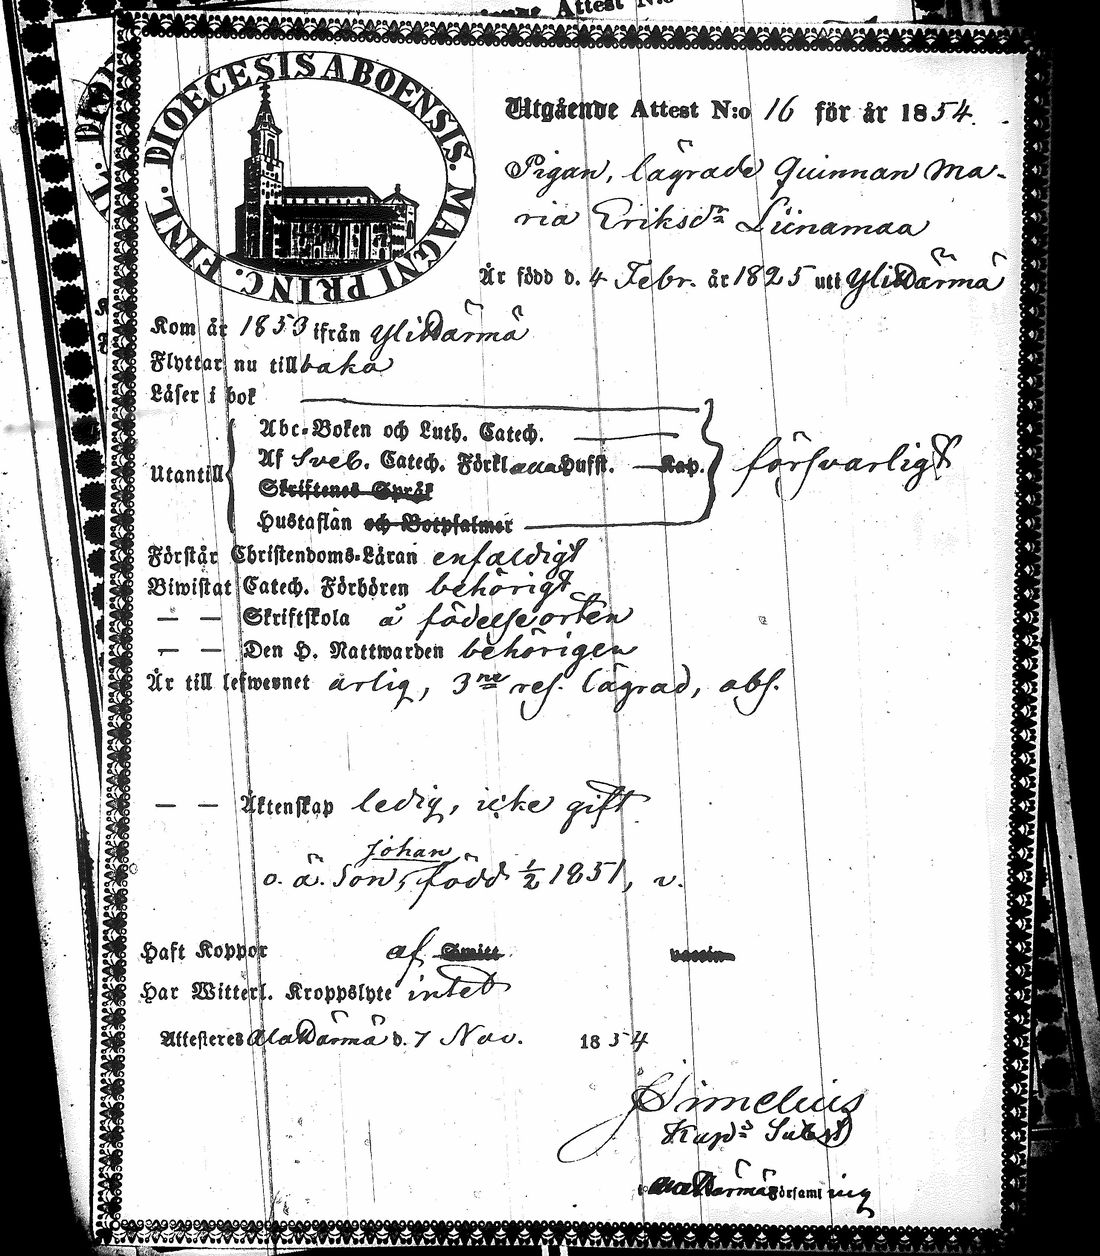 Attest N:o
DIOECESIS ABOENSIS. MAGNI PRINC. FINL.
Utgående Attest N:o 16 för år 1854.
Pigan, lägrade Quinnan Ma-
ria Eriksdr Liinamaa
Är född d. 4 Febr. år 1825 uti Ylihärmä
Kom år 1853 ifrån Ylihärmä
Flyttar nu tillbaka
Läser i bok
Abc-Boken och Luth. Catech.
Utantill Af Sveb. Catech. Förkl Husst. Kap. försvarligt
Skriftenes Språk
Hustaflan och Botpsalmer
Förstår Christendoms-Läran enfaldigt
Biwistat Catech. Förhören behörigt
— — Skriftskola å födelseorten
— — Den H. Nattwarden behörigen
Är till lefwernet ärlig, 3ne res. lägrad, abs.
— — Äktenskap ledig, icke gift
Johan
o. ä. Son, född 1/2 1851, v.
Haft Koppor af Smitt vaccin
Har Witterl. Kroppslyte intet
Attesteres Alahärmä d. 7 Nov. 1854
J Simelius
Kap:s Subst
Alahärmä Församling